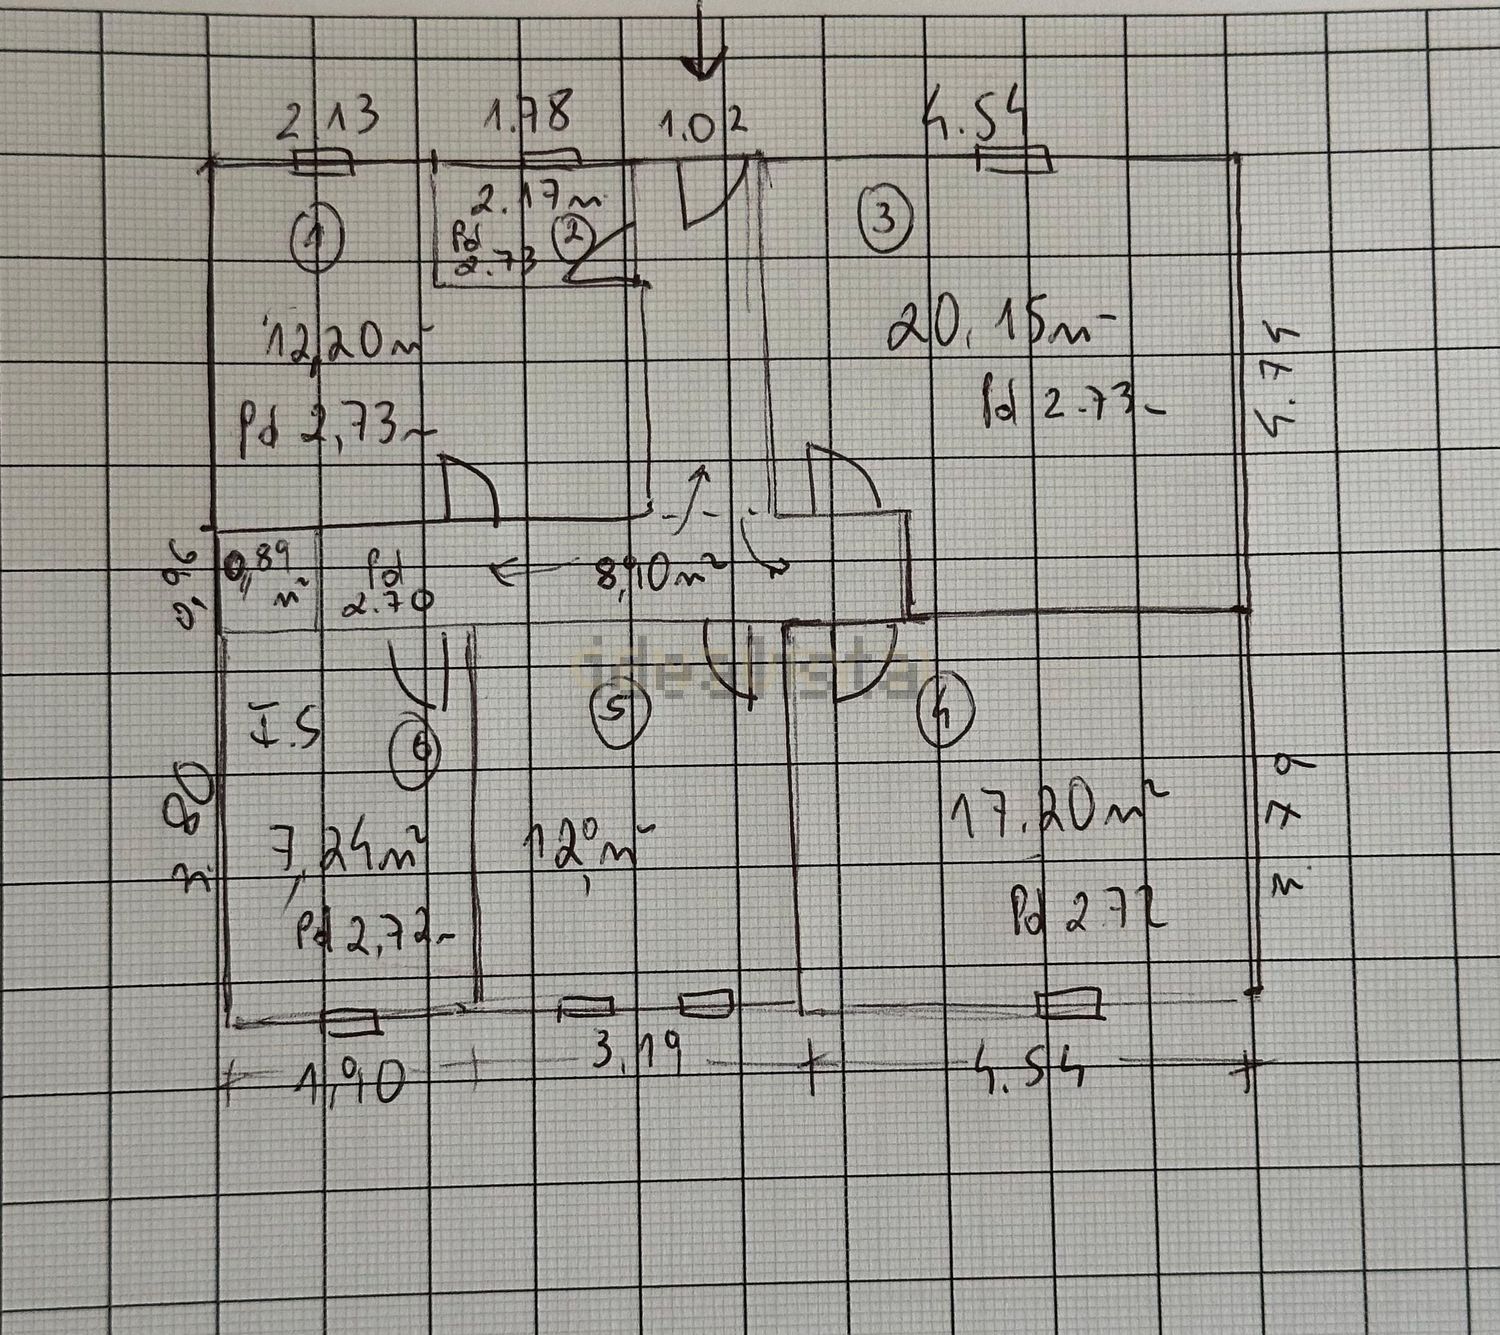 2.13
1.78
1.02
4.54
1
2.17m
Pd
2.73
2
3
12,20m²
Pd 2,73
20.15m
Pd 2.73
4.74
0,96
0,89
m²
Pd
2.70
8,10m²
idealista
I.S
6
5
4
3.80
7,24m²
Pd 2,72
12,0m²
17.20m²
Pd 2.72
3.79
1,90
3,19
4.54